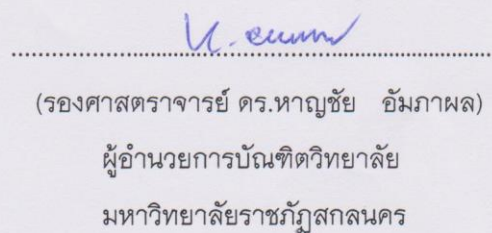 (รองศาสตราจารย์ ดร.หาญชัย อัมภาผล)
ผู้อำนวยการบัณฑิตวิทยาลัย
มหาวิทยาลัยราชภัฏสกลนคร